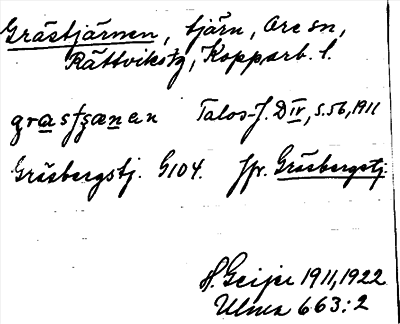 Grästjärnen, tjärn, Ore sn,
Rättvikstg, Kopparb. l.
grasfʒænen Talos-J. D IV, s. 56, 1911
Gräsbergstj. G104. Jfr. Gräsbergstj.
H. Geijer 1911, 1922
Ulma 663:2